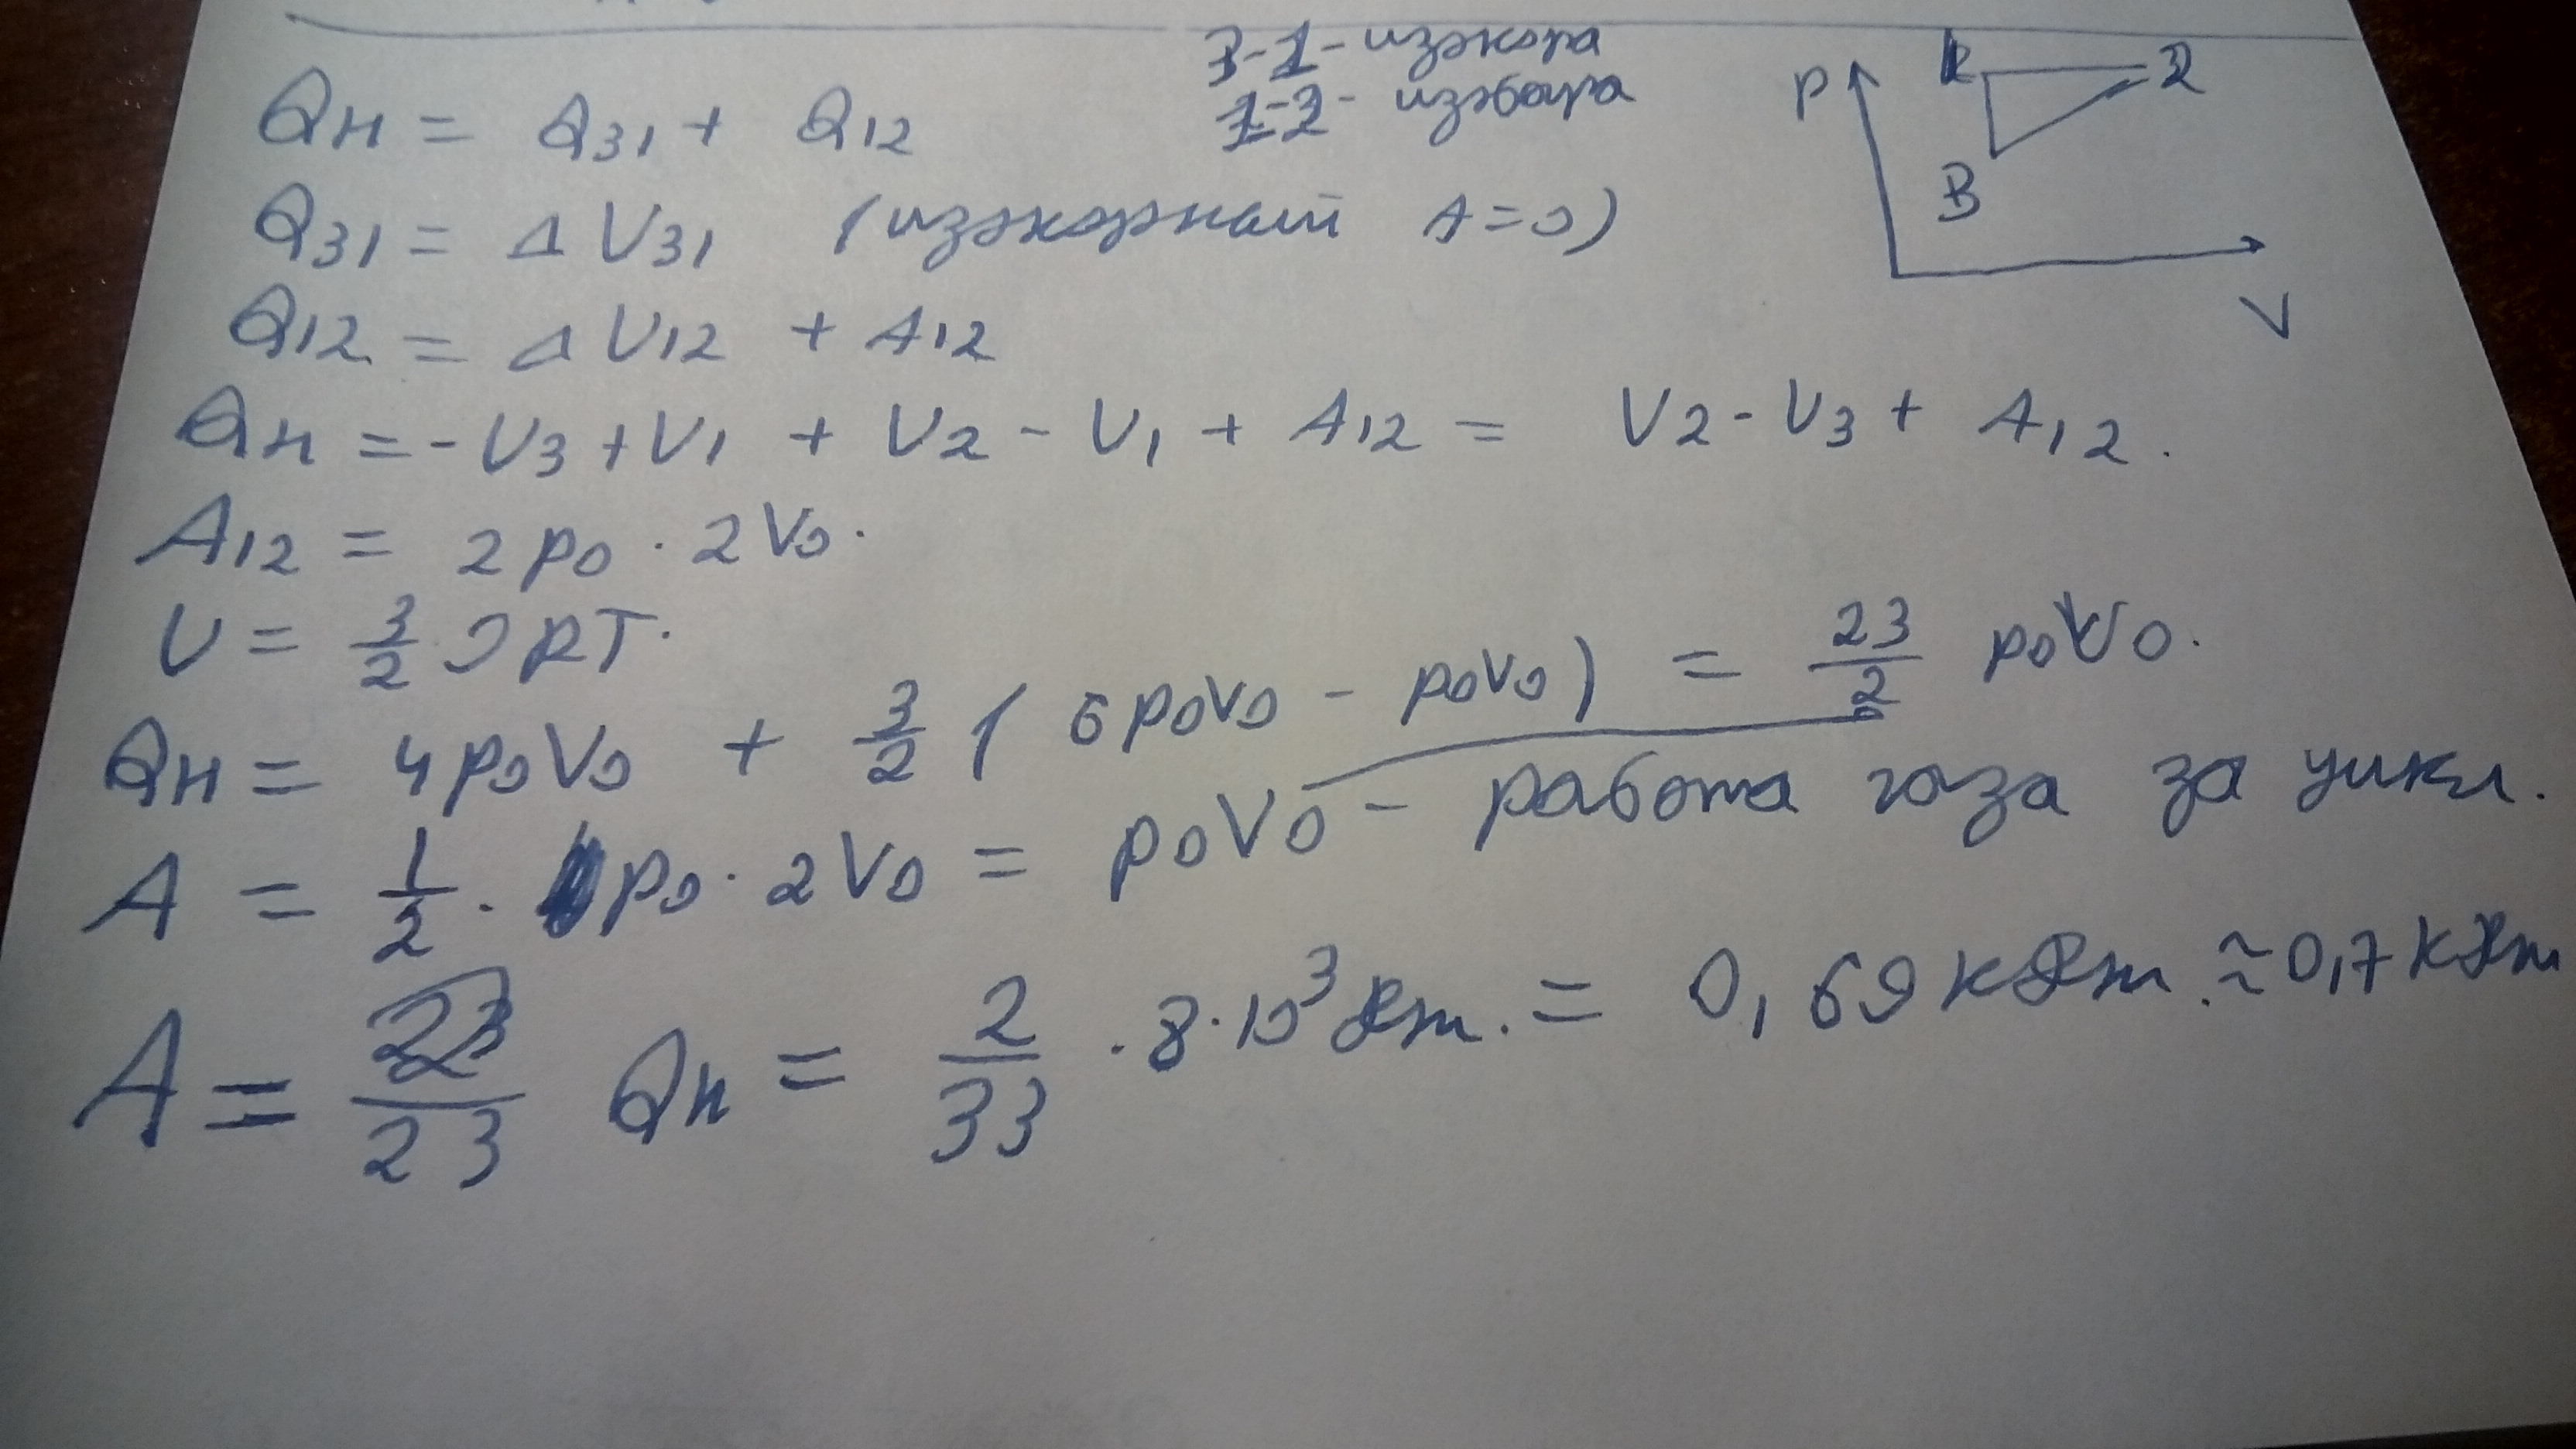 3-1 - изохора
1-2 - изобара
Qн = Q31 + Q12
Q31 = ΔU31 (изохорный A=0)
Q12 = ΔU12 + A12
Qн = -U3 + U1 + U2 - U1 + A12 = U2 - U3 + A12.
A12 = 2p0 · 2V0.
U = 3/2 νRT.
Qн = 4p0V0 + 3/2 (6p0V0 - p0V0) = 23/2 p0V0.
A = 1/2 · p0 · 2V0 = p0V0 - работа газа за цикл.
A = 2/23 Qн = 2/33 · 8·10³ Дж. = 0,69 кДж. ≈ 0,7 кДж
P
2
3
V